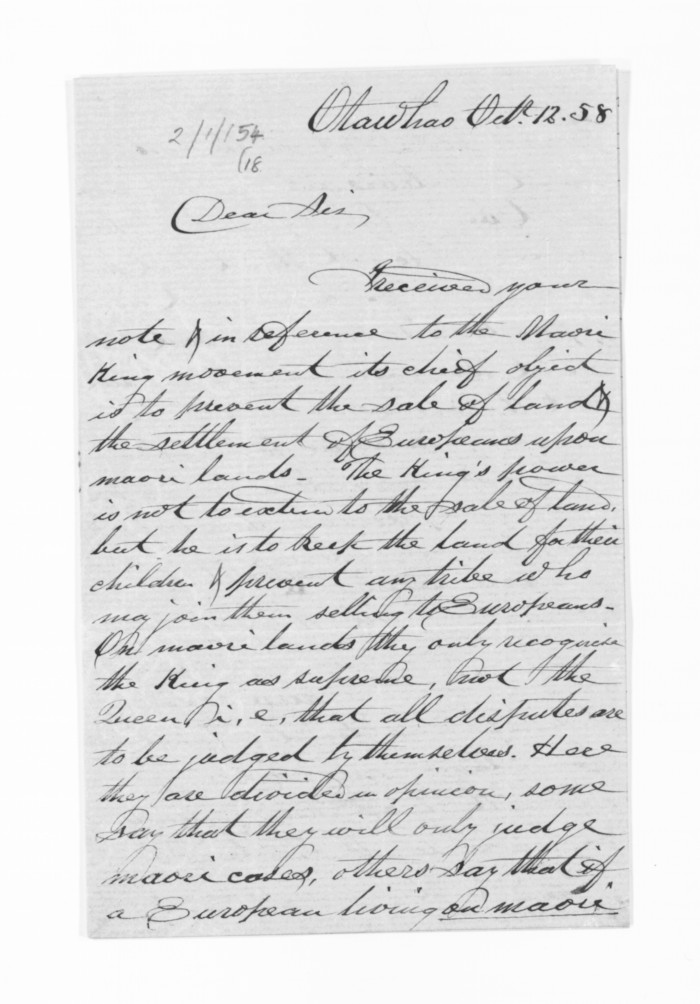 Otawhao Oct. 12. 58
2/1/154
18
Dear Sir,
I received your
note & in reference to the Maori
King movement its chief object
is to prevent the sale of land &
the settlement of Europeans upon
maori lands - The King's power
is not to extend to the sale of land,
but he is to keep the land for their
children & prevent any tribe who
may join them selling to Europeans -
On maori lands they only recognise
the King as supreme, not the
Queen i, e, that all disputes are
to be judged by themselves. Here
they are divided in opinion, some
say that they will only judge
maori cases, others say that if
a European living on maori